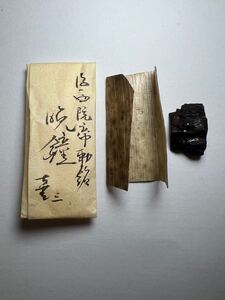 後西院帝勅銘
晩鐘
三